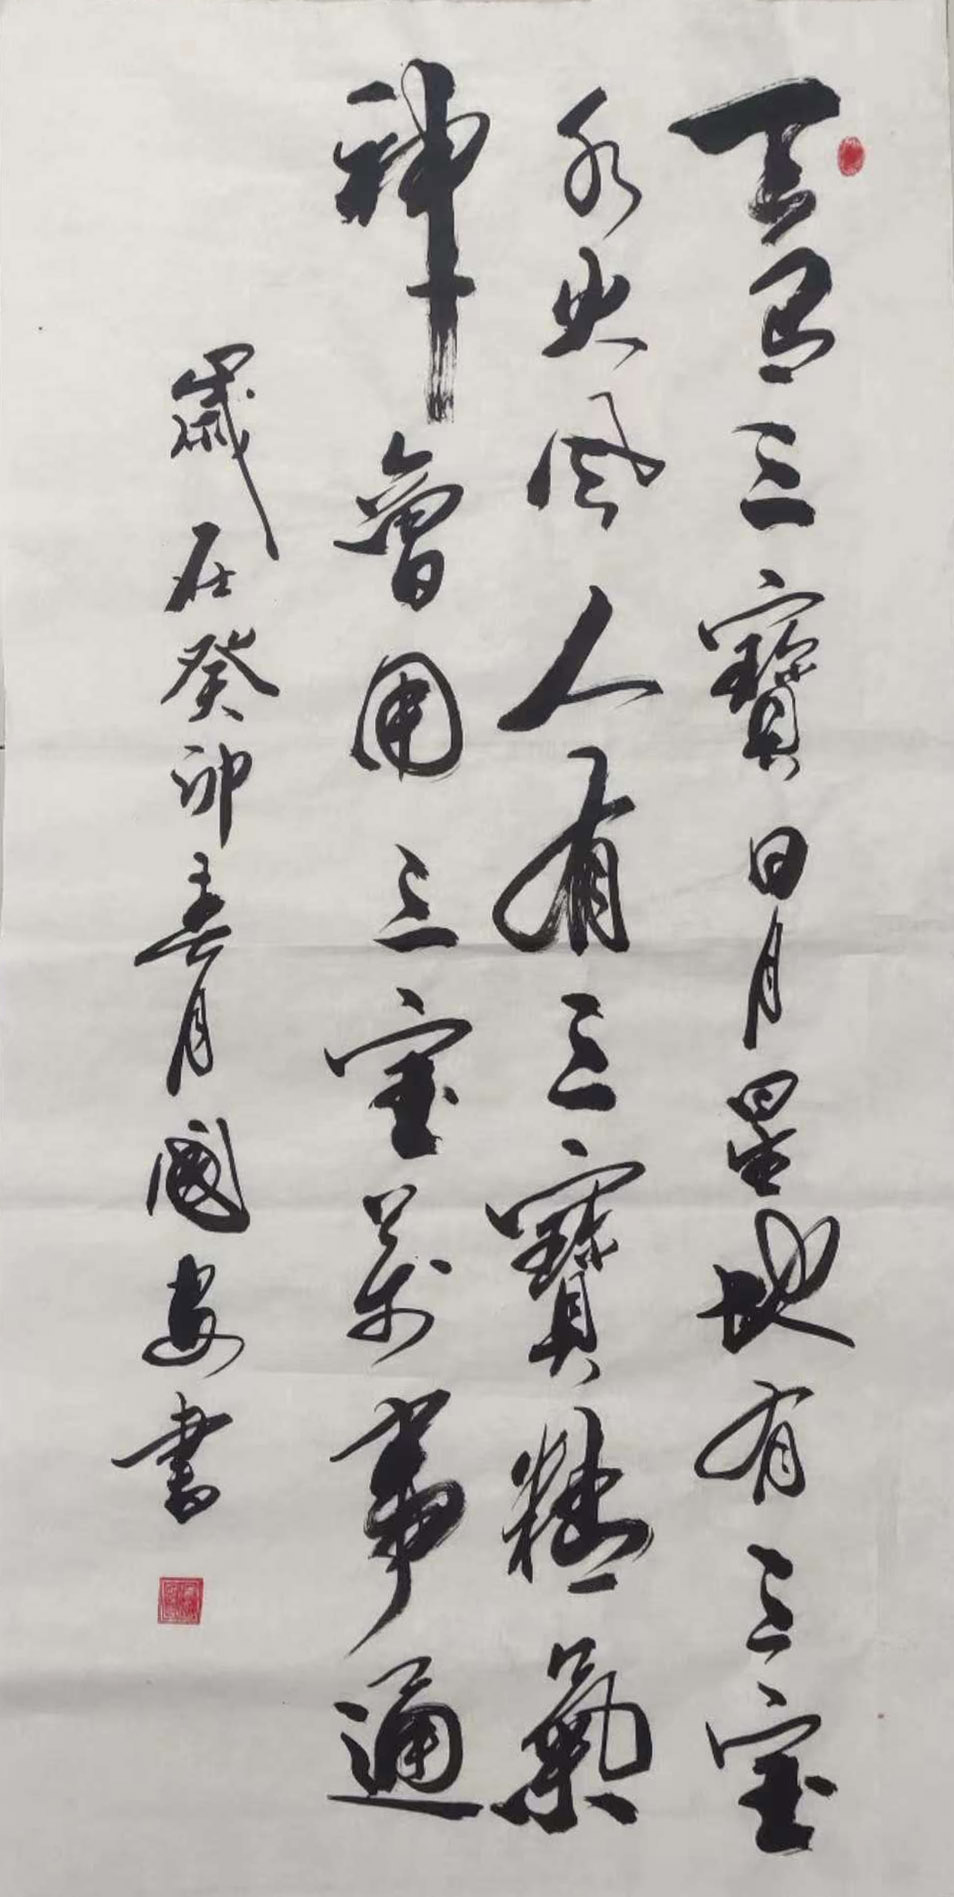 天有三寶日月星地有三宝
水火风人有三寶精氣
神會用三宝万事通
歲在癸卯春月國安書